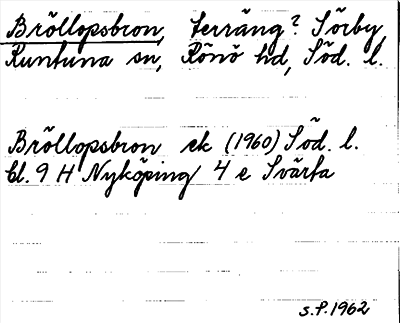 Bröllopsbron, terräng? Sörby,
Runtuna sn, Rönö hd, Söd. l.
Bröllopsbron ek (1960) Söd. l.
bl. 9 H Nyköping 4 e Svärta
S.P. 1962